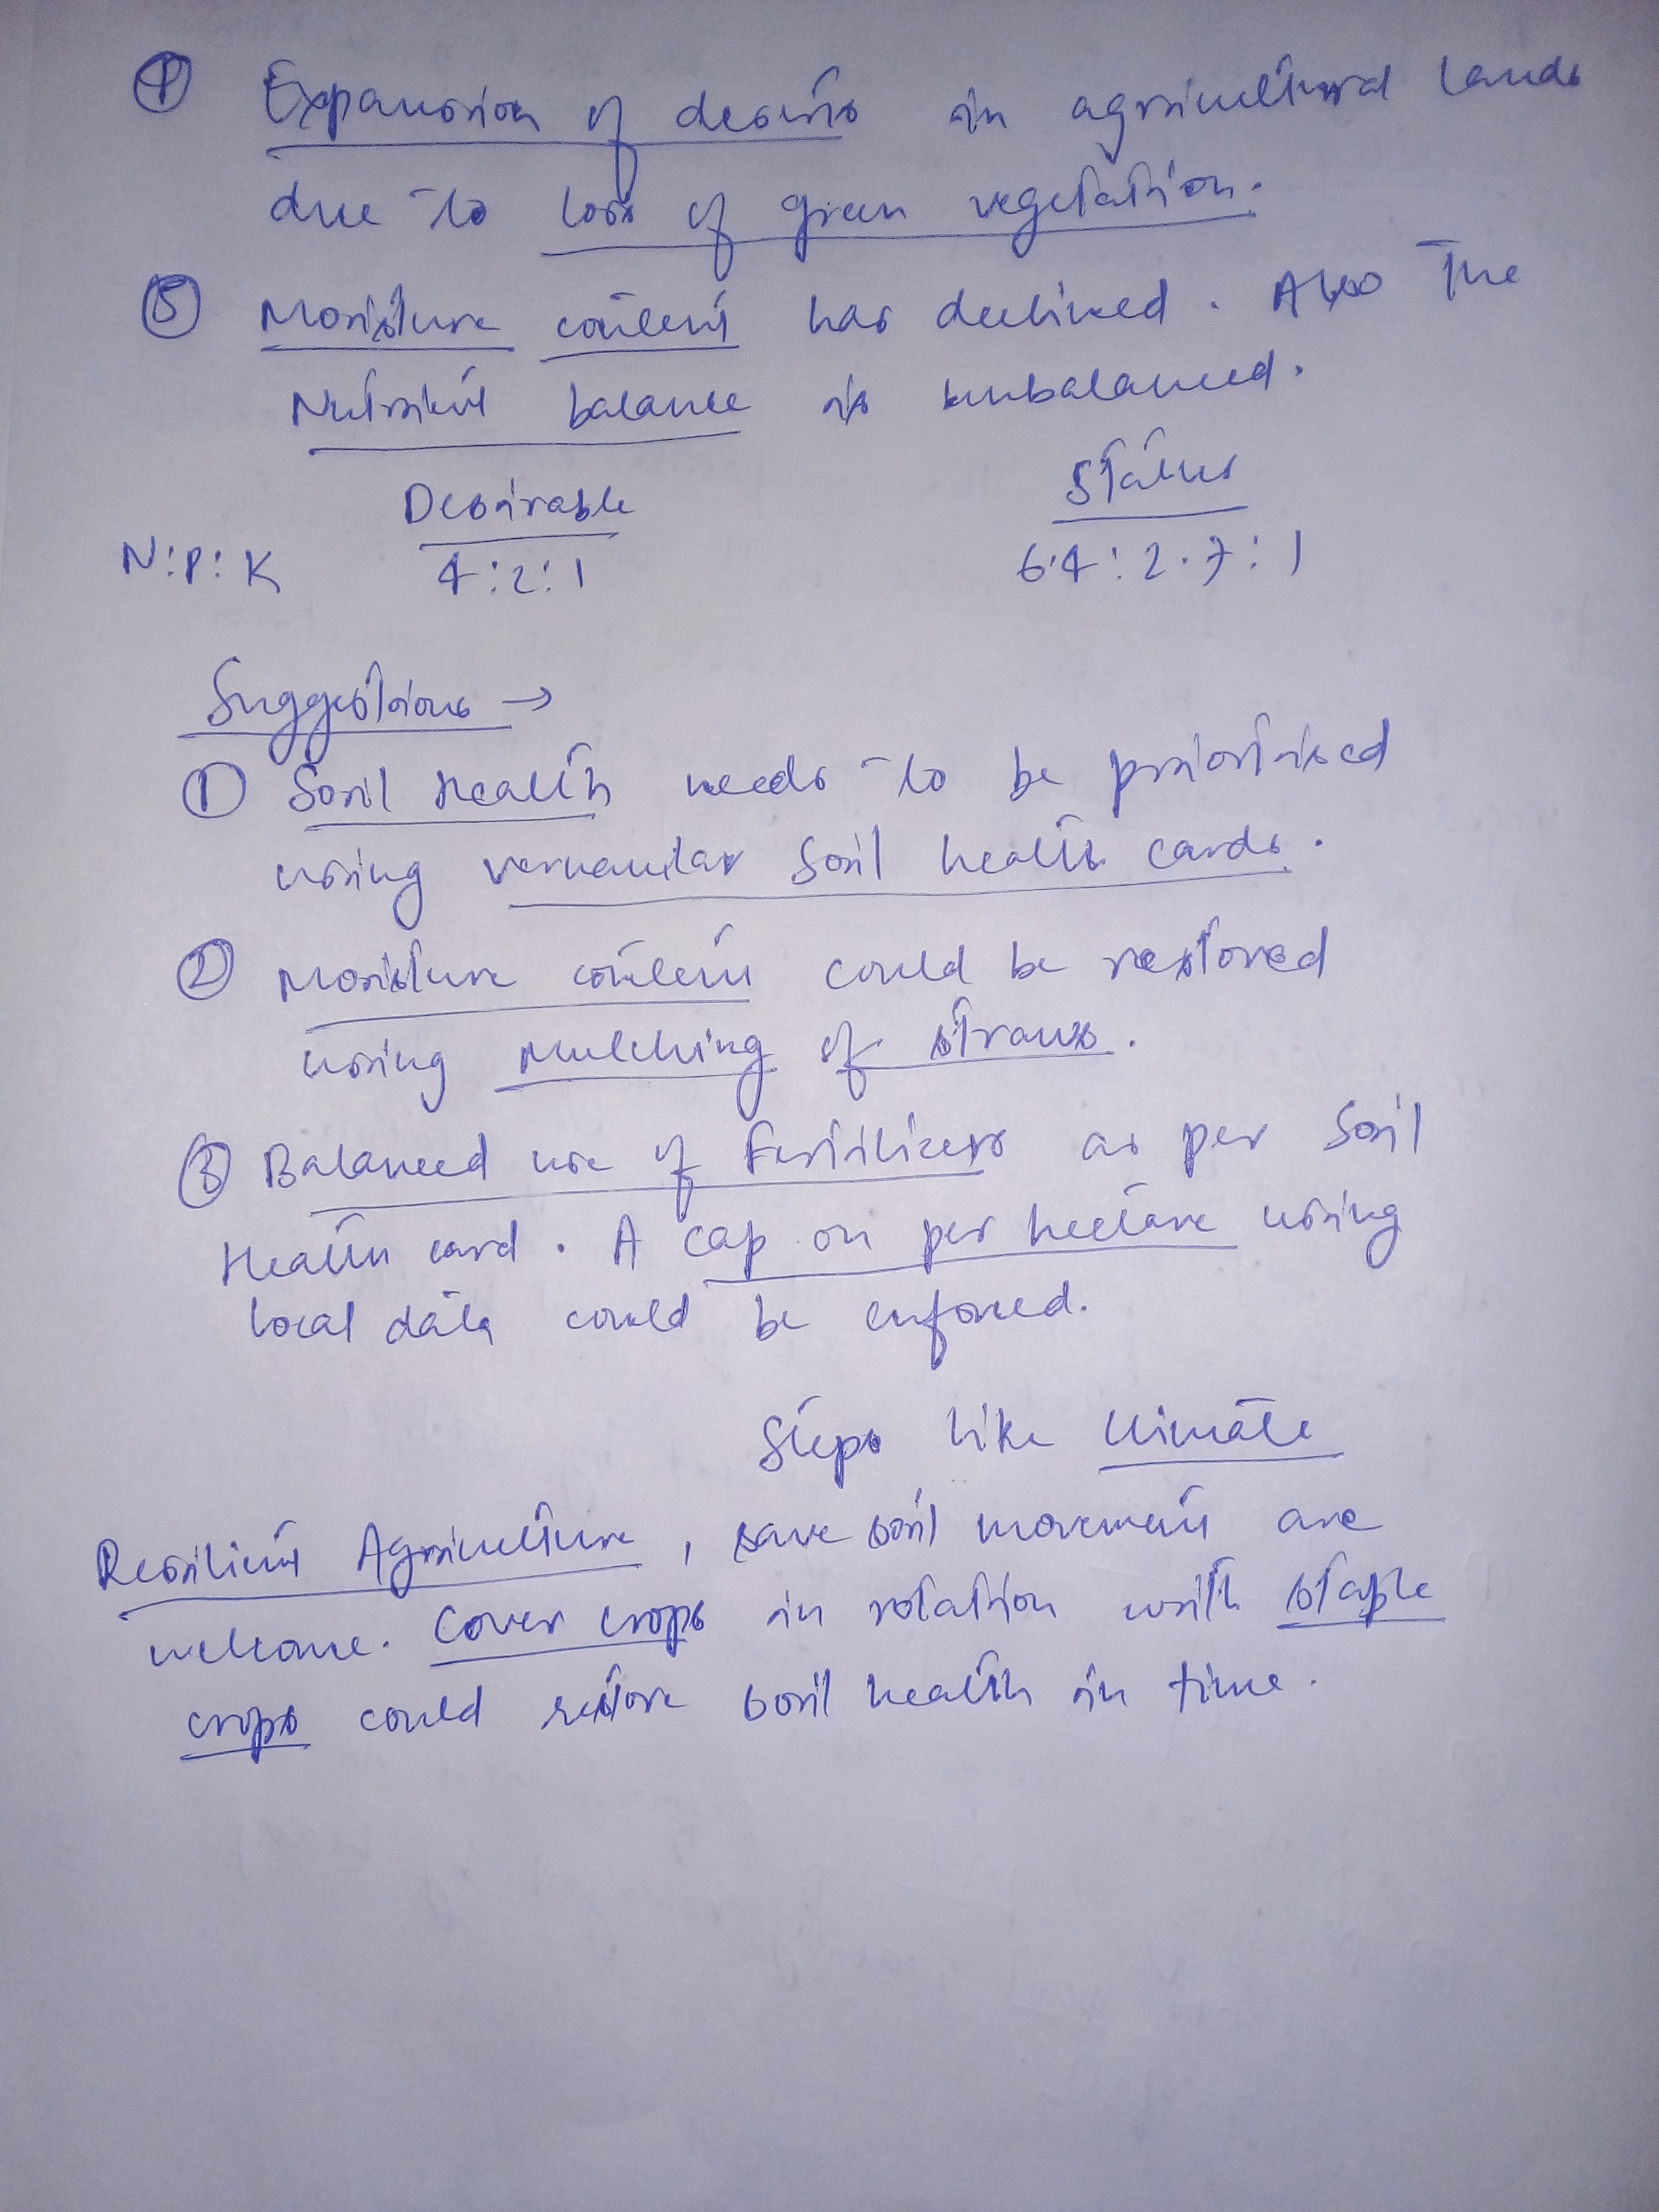 ④ Expansion of deserts in agricultural lands
due to loss of green vegetation.
⑤ Moisture content has declined. Also The
Nutrient balance is unbalanced.
Desirable Status
N:P:K 4:2:1 6.4:2.7:1
Suggestions →
① Soil Health needs to be prioritised
using vernacular soil health cards.
② Moisture content could be restored
using mulching of straws.
③ Balanced use of Fertilizers as per Soil
Health card. A cap on per hectare using
local data could be enforced.
Steps like Climate
Resilient Agriculture, save soil movement are
welcome. Cover crops in rotation with staple
crops could restore soil health in time.